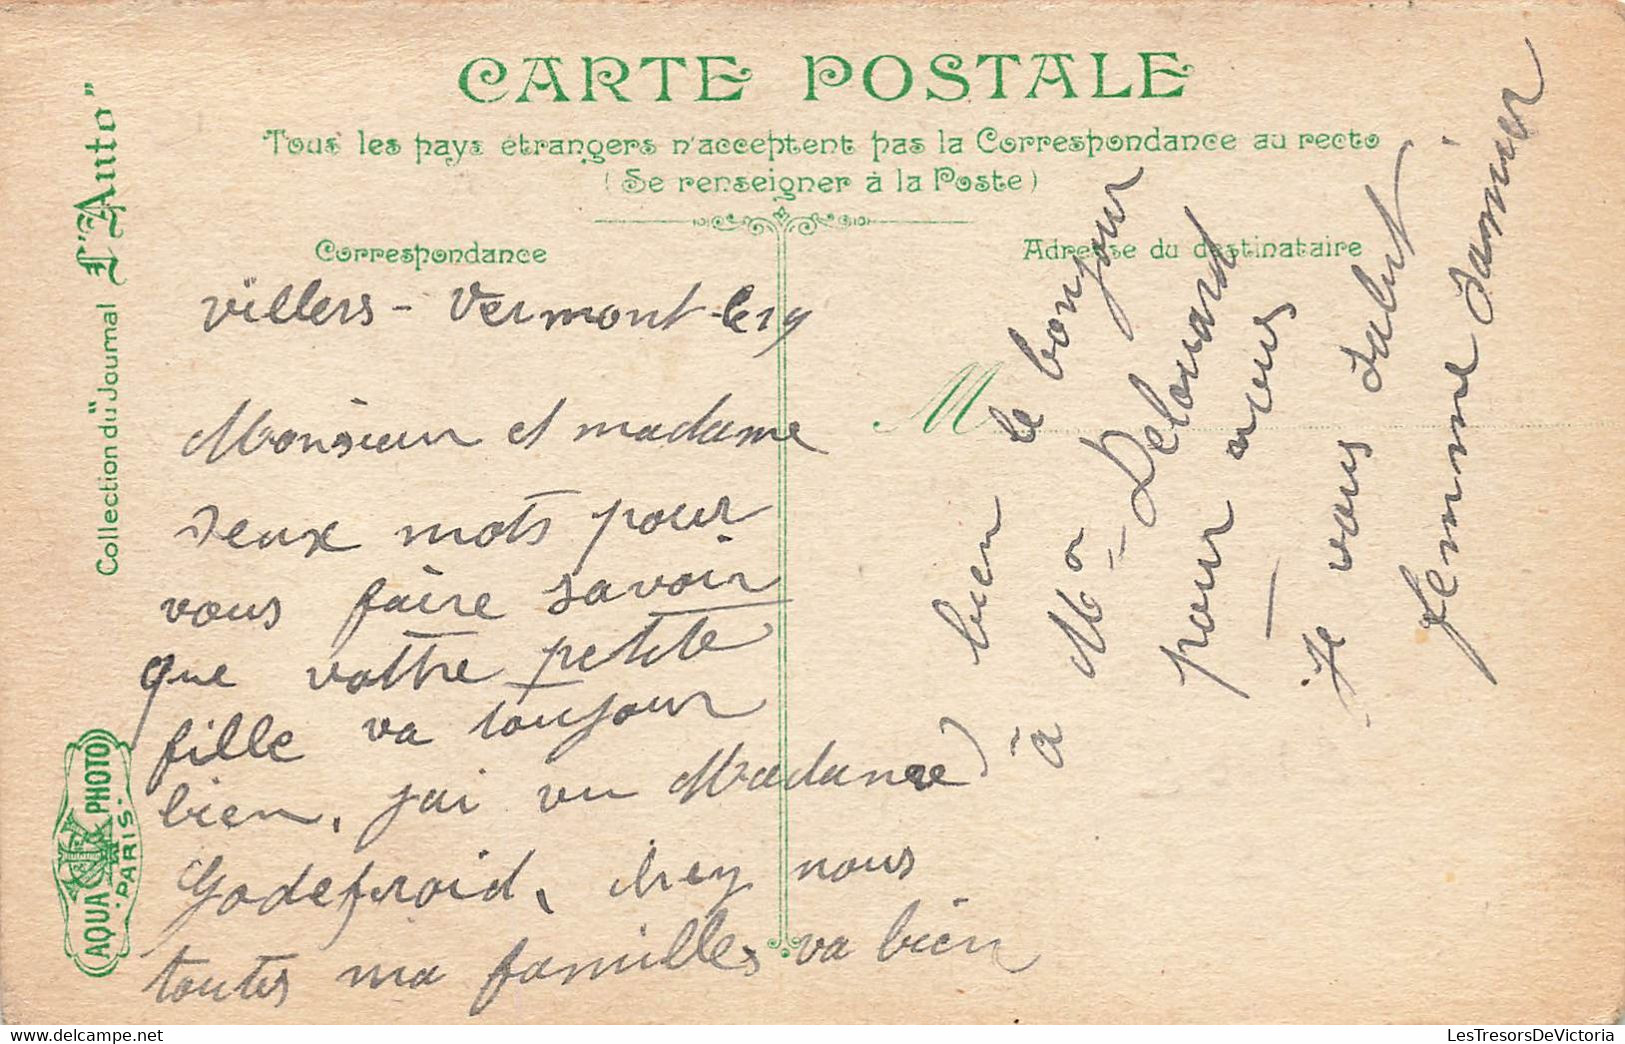 CARTE POSTALE
Tous les pays étrangers n'acceptent pas la Correspondance au recto
(Se renseigner à la Poste)
Correspondance
Adresse du destinataire
Collection du Journal "L'Auto"
AQUA PHOTO
PARIS
M
villers - Vermont le 19
Monsieur et madame
deux mots pour
vous faire savoir
que vottre petite
fille va toujour
bien, jai vu Madame
Godefroid, chez nous
toutes ma familles va bien
bien le bonjour
à Mr Delouard
pour nous
Je vous salut
femme Damier
LesTresorsDeVictoria
LesTresorsDeVictoria.com